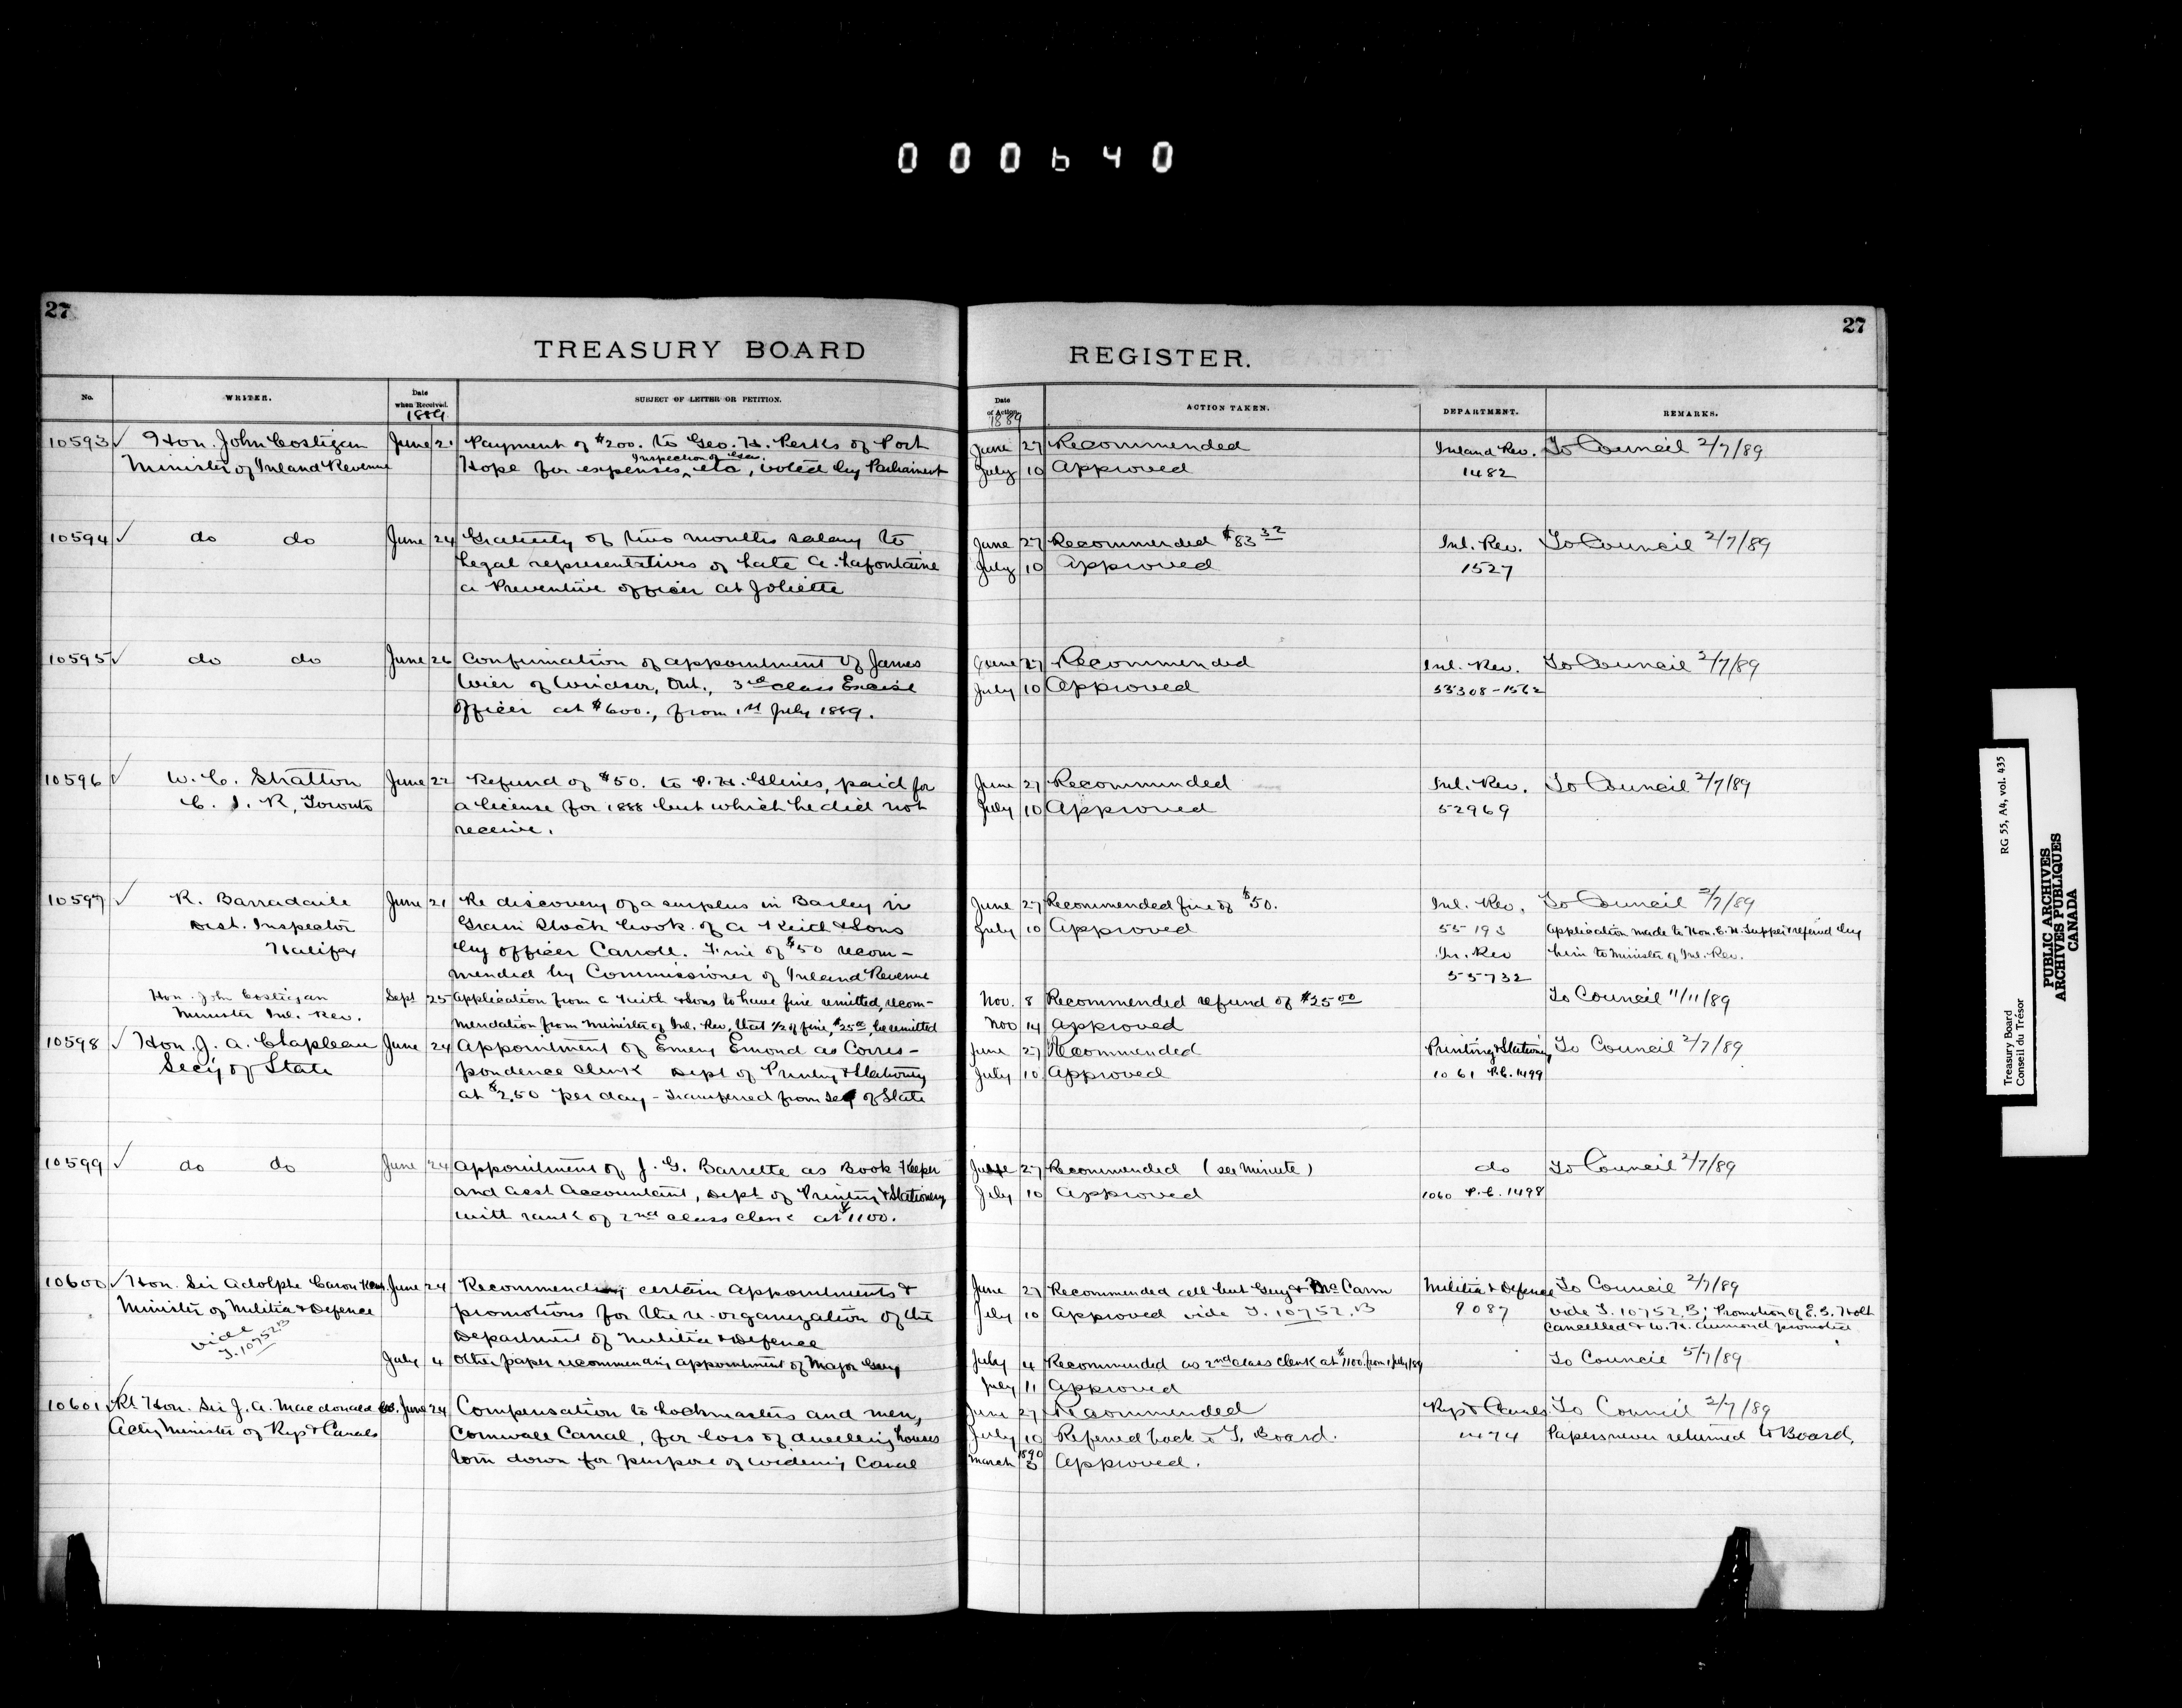 000640
27
27
TREASURY BOARD
REGISTER.
No.
WRITER.
Date when Received.
1889
SUBJECT OF LETTER OR PETITION.
Date of Action.
1889
ACTION TAKEN.
DEPARTMENT.
REMARKS.
10593 ✓ Hon. John Costigan June 21 Payment of $200. to Geo. H. Perks of Port June 27 Recommended Inland Rev. To Council 2/7/89
Inspection of Gas.
Minister of Inland Revenue Hope for expenses ^ etc, voted by Parliament July 10 Approved 1482
10594 ✓ do do June 24 Gratuity of two months salary to June 27 Recommended $83 32 Inl. Rev. To Council 2/7/89
legal representatives of late A. Lafontaine July 10 Approved 1527
a Preventive officer at Joliette
10595 ✓ do do June 26 Confirmation of appointment of James June 27 Recommended Inl. Rev. To Council 2/7/89
Weir of Windsor, Ont., 3rd class Excise July 10 Approved 53308-1562
officer at $600., from 1st July 1889.
10596 ✓ W. C. Stratton June 22 Refund of $50. to P. H. Glines, paid for June 27 Recommended Inl. Rev. To Council 2/7/89
C. I. R, Toronto a license for 1888 but which he did not July 10 Approved 52969
receive.
10597 ✓ R. Barradaile June 21 Re discovery of a surplus in Barley in June 27 Recommended fine of $50. Inl. Rev. To Council 2/7/89
Dist. Inspector Grain Stock book of A Keith & Sons July 10 Approved 55193 Application made to Hon. C. H. Tupper & referred by
Halifax by officer Carroll. Fine of $50 recom- In. Rev him to Minister of Inl. Rev.
mended by Commissioner of Inland Revenue 55732
Hon. John Costigan Sept 25 Application from A Keith & Sons to have fine remitted, recom- Nov. 8 Recommended refund of $25 00 To Council 11/11/89
Minister Inl. Rev. mendation from Minister of Inl. Rev, that 1/2 of fine, $25 00, be remitted Nov 14 Approved
10598 ✓ Hon. J. A. Chapleau June 24 Appointment of Emery Emond as Corres- June 27 Recommended Printing & Stationery To Council 2/7/89
Sec'y of State pondence Clerk Dept of Printing & Stationery July 10 Approved 1061 P.C. 1499
at $2.50 per day - Transferred from Sec of State
10599 ✓ do do June 24 Appointment of J. G. Barrette as Book Keeper June 27 Recommended (see minute) do To Council 2/7/89
and Asst Accountant, Dept of Printing & Stationery July 10 Approved 1060 P.C. 1498
with rank of 2nd class clerk at $1100.
10600 ✓ Hon. Sir Adolphe Caron June 24 Recommending certain appointments & June 27 Recommended all but Guy & McCann Militia & Defence To Council 2/7/89
Minister of Militia & Defence promotions for the re-organization of the July 10 Approved vide T. 10752.B 9087 vide T. 10752.B; Promotion of E. S. Holt
vide T. 10752B Department of Militia & Defence cancelled & W. H. Aumond promoted
July 4 Other paper recommending appointment of Major Guy July 4 Recommended as 2nd class clerk at $1100. from 1 July/89 To Council 5/7/89
July 11 Approved
10601 ✓ Rt Hon. Sir J. A. Macdonald June 24 Compensation to Lockmasters and men, June 27 Recommended Rys & Canals To Council 2/7/89
Actg Minister of Rys & Canals Cornwall Canal, for loss of dwelling houses July 10 Referred back to T. Board. Papers never returned to Board.
torn down for purpose of widening Canal March 1890 5 Approved.
Treasury Board RG 55, A4, vol. 435
Conseil du Trésor
PUBLIC ARCHIVES
ARCHIVES PUBLIQUES
CANADA